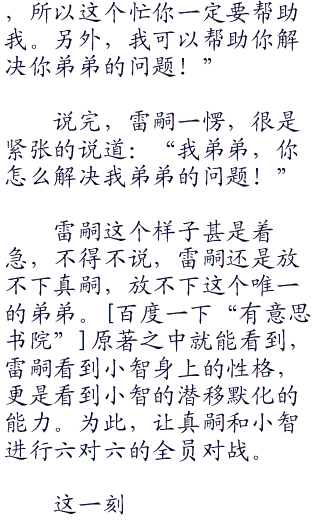 ，所以这个忙你一定要帮助
我。另外，我可以帮助你解
决你弟弟的问题！”
说完，雷嗣一愣，很是
紧张的说道：“我弟弟，你
怎么解决我弟弟的问题！”
雷嗣这个样子甚是着
急，不得不说，雷嗣还是放
不下真嗣，放不下这个唯一
的弟弟。[百度一下“有意思
书院”]原著之中就能看到，
雷嗣看到小智身上的性格，
更是看到小智的潜移默化的
能力。为此，让真嗣和小智
进行六对六的全员对战。
这一刻